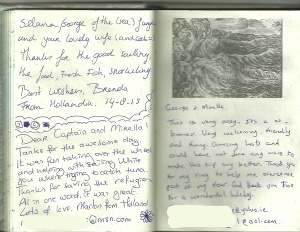 Selana George of the (sea)
and your lovely wife (and cook)
Thanks for the good sailing
the food, Fresh Fish, Snorkeling
Best wishes, Brenda
From Hollandia. 14-8-13
Dear Captain and Mirella!
Tanks for the awesome day
It was fun taking over the wheel
and helping with sailing While
you where trying to catch tuna.
Thanks for saving the refugion
All in one word, it was great.
Lots of love, Marlon from Holland
@msn.com
George & Mirella,
This is very easy. It's a
Very welcoming, friendly
and funny. Amazing hosts and
could have not done any more to
make this day any better. Thank you
for my ring to help me overcome
part of my fear. God bless you Two
for a wonderful holiday.
@yahoo.ie
@aol.com.